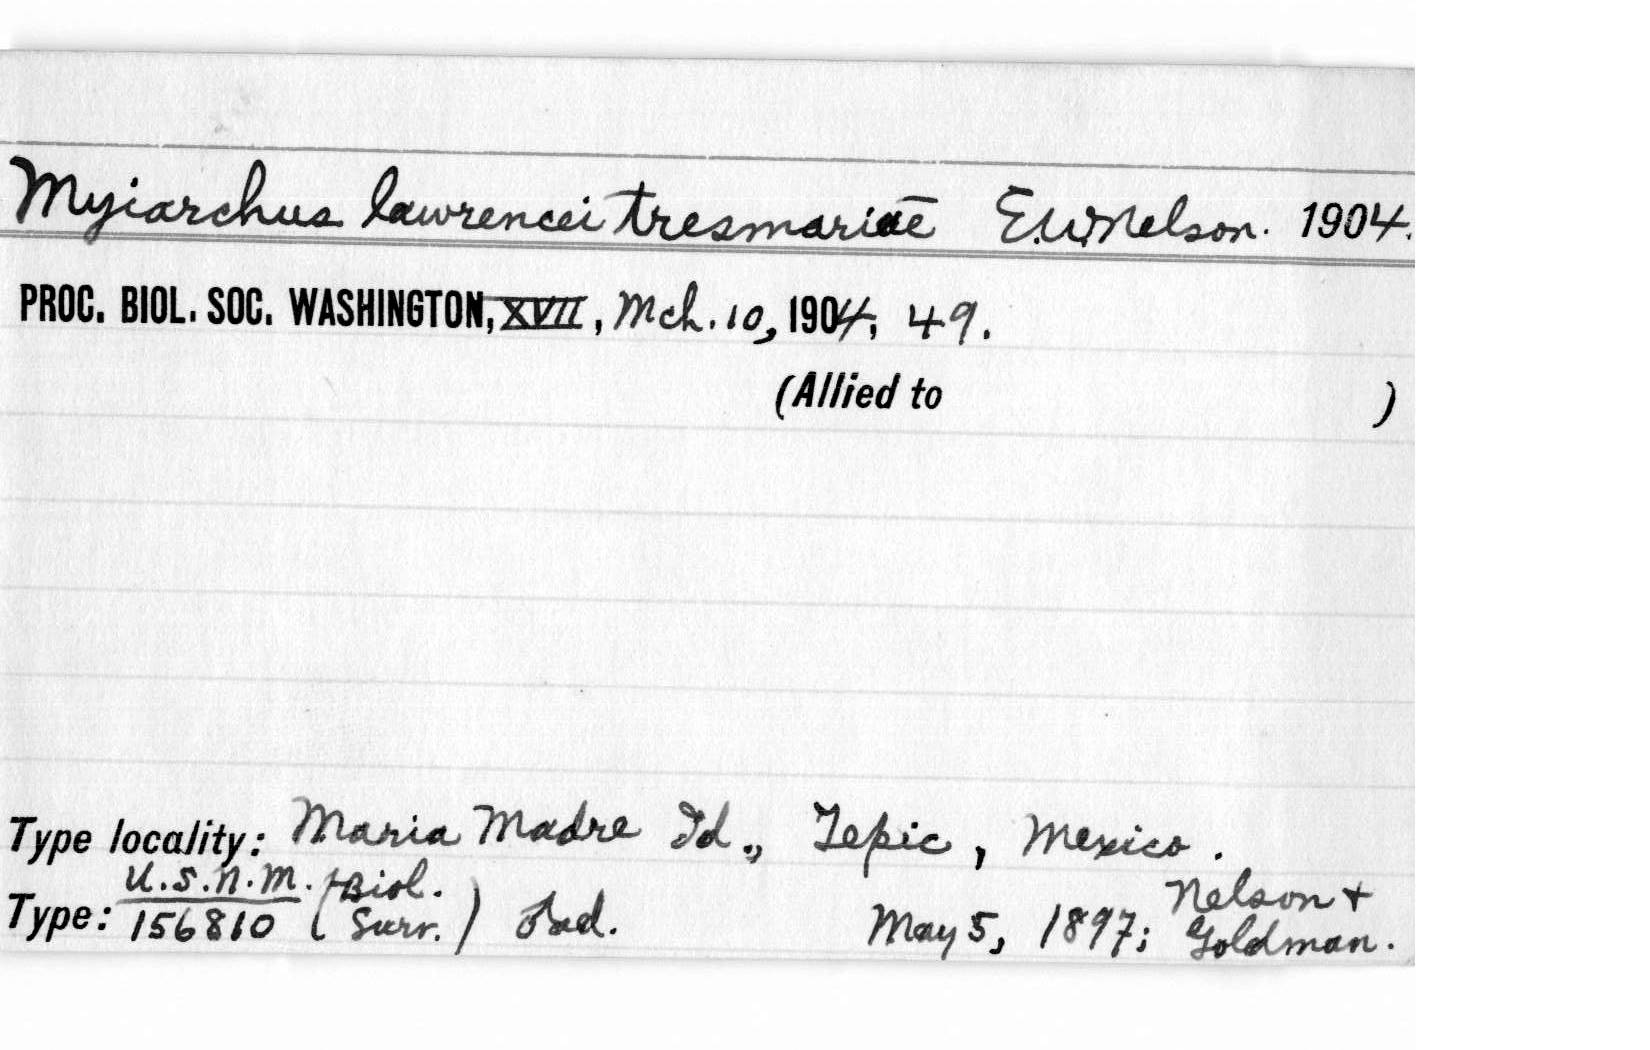 Myiarchus lawrencei tresmariae E.W. Nelson. 1904.
PROC. BIOL. SOC. WASHINGTON, XVII, Mch. 10, 1904, 49.
(Allied to )
Type locality: Maria Madre Id., Tepic, Mexico.
Type: U.S.N.M. 156810 (Biol. Surv.) ad. May 5, 1897; Nelson + Goldman.